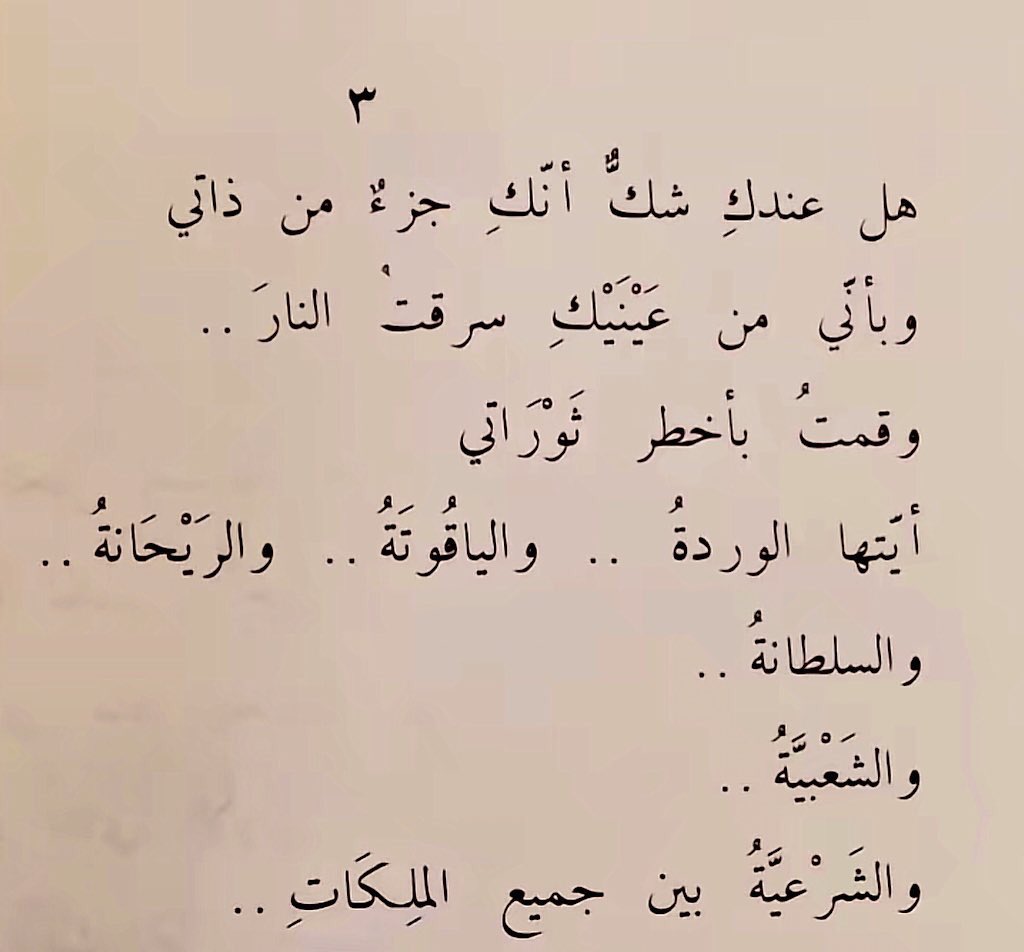 ٣
هل عندكِ شكٌّ أنّكِ جزءٌ من ذاتي
وبأنّي من عَيْنَيْكِ سرقتُ النارَ ..
وقمتُ بأخطر ثَوْرَاتي
أيّتها الوردةُ .. والياقُوتَةُ .. والرَيْحَانةُ ..
والسلطانةُ ..
والشَعْبيَّةُ ..
والشَرْعيَّةُ بين جميع الملِكَاتِ ..